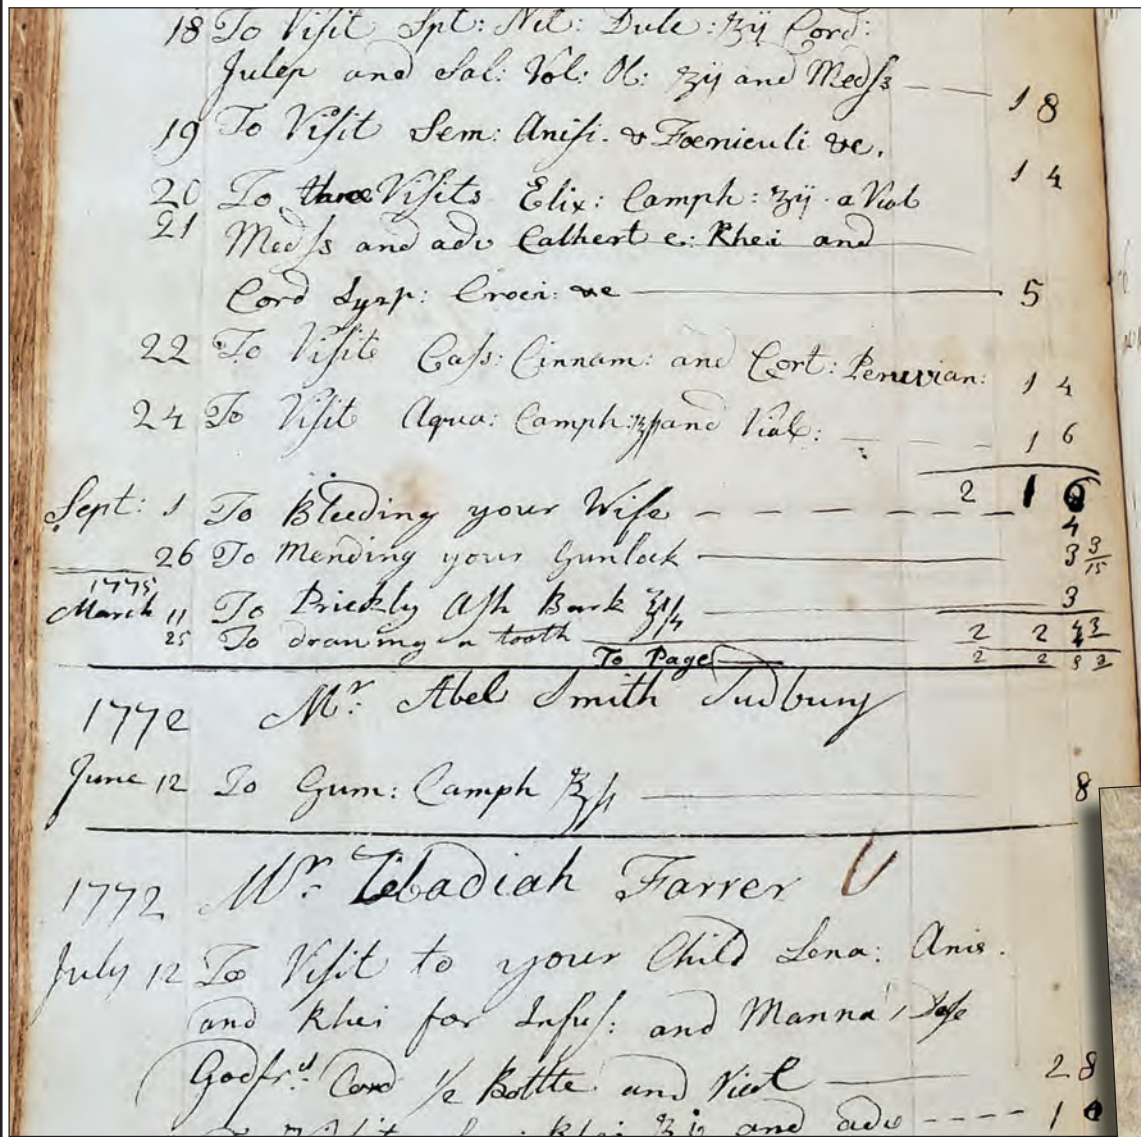 18 To Visit Spt: Nit: Dulc: ʒij Cord:
Julep and Sal: Vol: Ol: ʒij and Medss 1 8
19 To Visit Sem: Anisi. & Fœniculi &c. 1 4
20 To three Visits Elix: Camph: ʒij. a Vial
21 Medss and adv Cathert c: Rhei and
Cord Syrp: Croci: &c 5
22 To Visit Cass: Cinnam: and Cort: Peruvian: 1 4
24 To Visit Aqua: Camph: and Vial: 1 6
2 1
Sept: 1 To Bleeding your Wife 4
26 To Mending your Gunlock 3 3/15
1775
March 11 To Prickly Ash Bark 3
25 To drawing a tooth 2 2
To Page 2 2
1772 Mr: Abel Smith Sudbury
June 12 To Gum: Camph 8
1772 Mr: Zebadiah Farrer
July 12 To Visit to your Child Sena: Anis.
and Rhei for Infus: and Manna 1 Dose
Godfrd Cord 1/2 Bottle and Vial 2 8
Rhei and adv 1